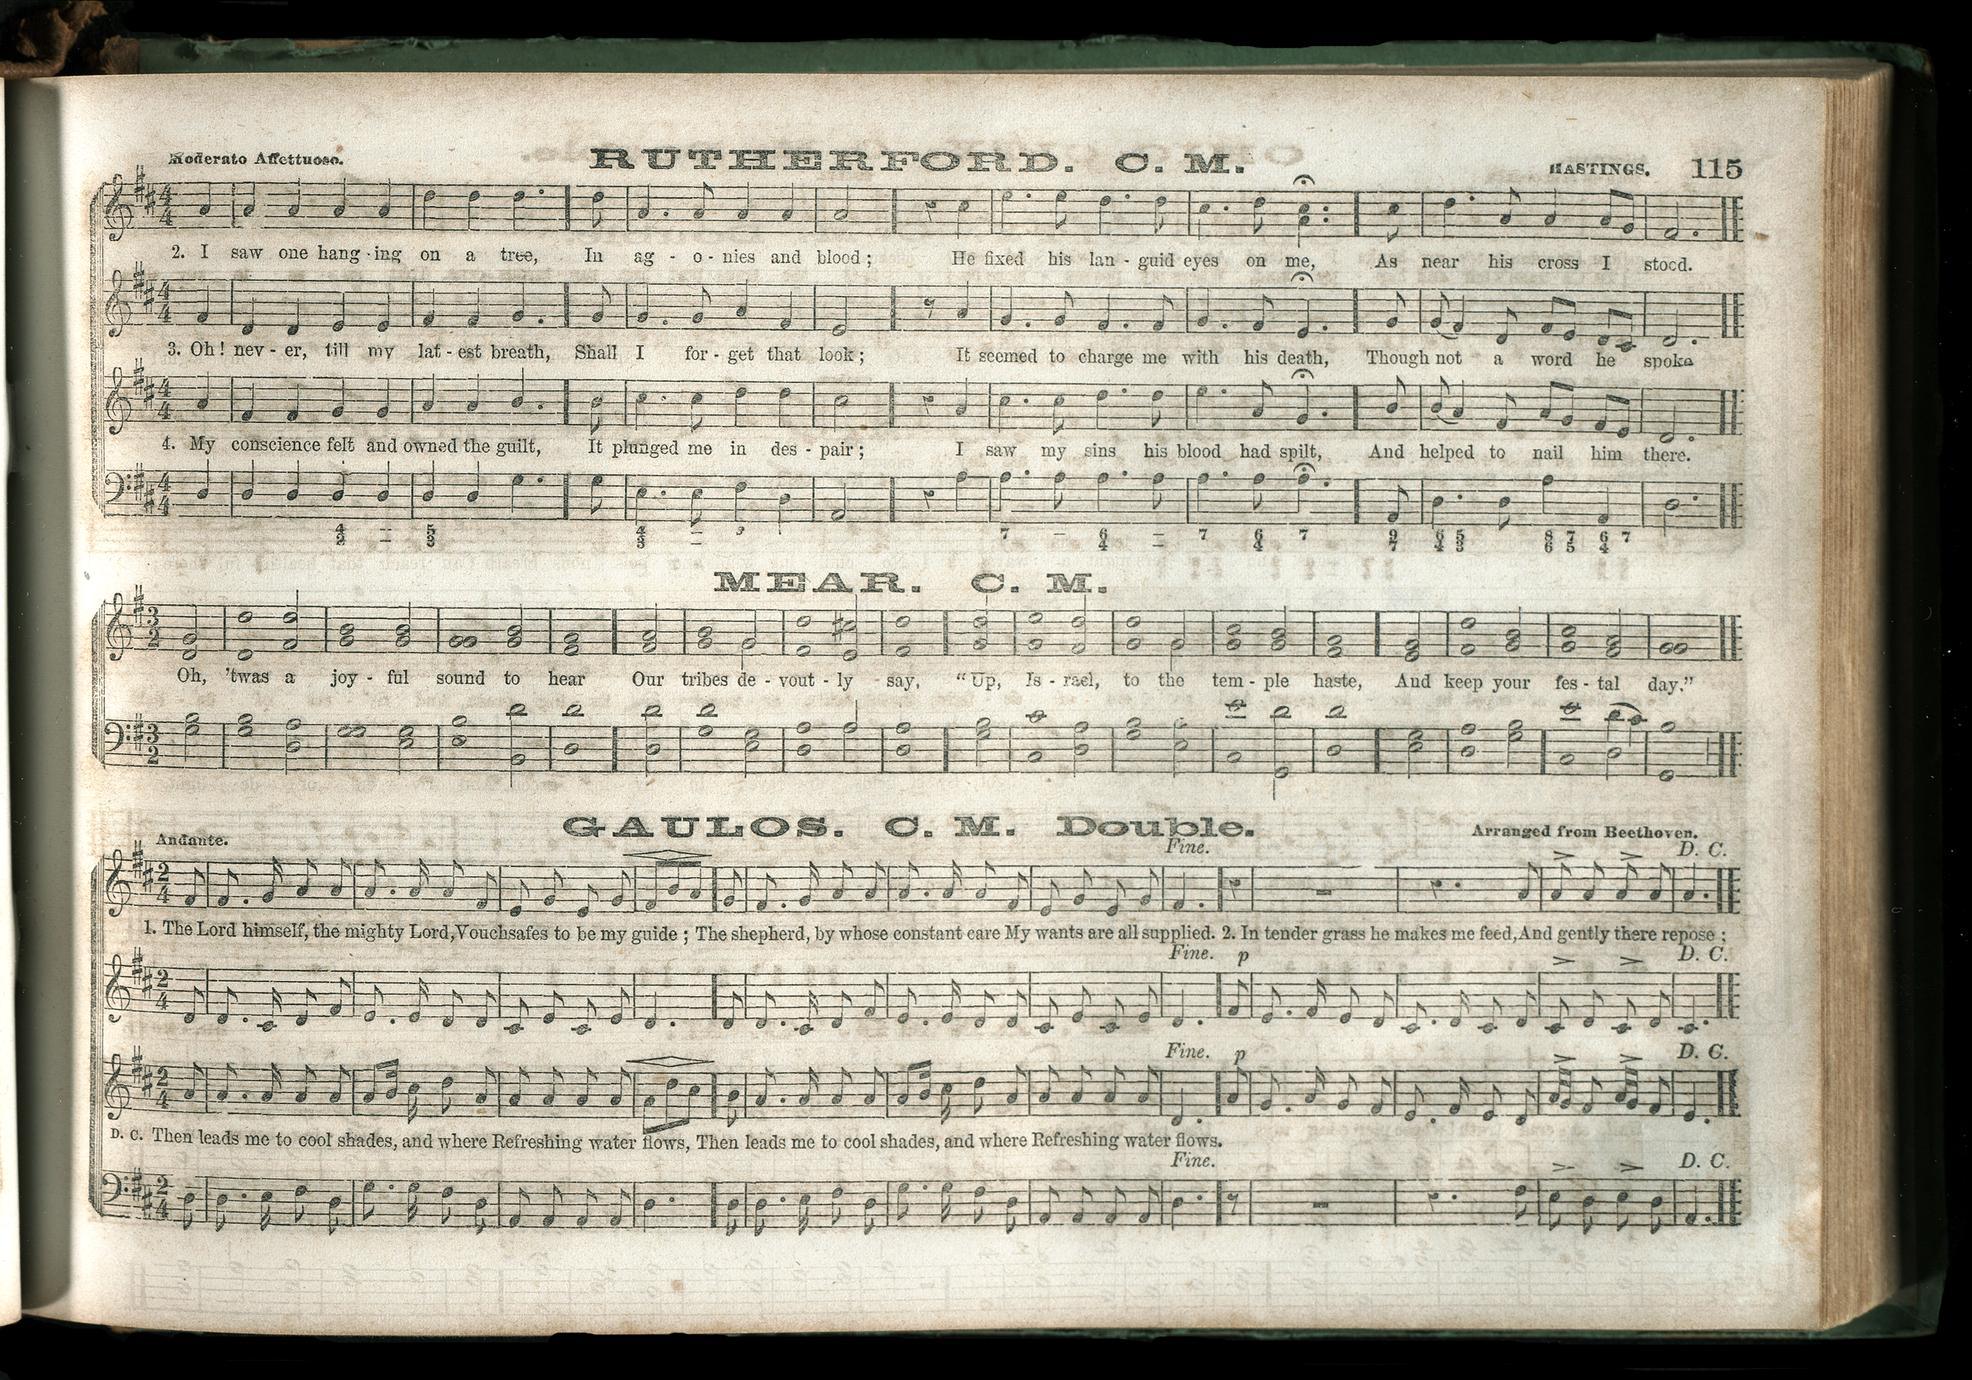 Moderato Affettuoso. RUTHERFORD. C. M. HASTINGS. 115
2. I saw one hang - ing on a tree, In ag - o - nies and blood; He fixed his lan - guid eyes on me, As near his cross I stood.
3. Oh! nev - er, till my lat - est breath, Shall I for - get that look; It seemed to charge me with his death, Though not a word he spoke
4. My conscience felt and owned the guilt, It plunged me in des - pair; I saw my sins his blood had spilt, And helped to nail him there.
MEAR. C. M.
Oh, 'twas a joy - ful sound to hear Our tribes de - vout - ly say, “Up, Is - rael, to the tem - ple haste, And keep your fes - tal day.”
GAULOS. C. M. Double.
Andante. Arranged from Beethoven.
Fine. D. C.
1. The Lord himself, the mighty Lord, Vouchsafes to be my guide; The shepherd, by whose constant care My wants are all supplied. 2. In tender grass he makes me feed, And gently there repose;
Fine. p D. C.
Fine. p D. C.
D. C. Then leads me to cool shades, and where Refreshing water flows, Then leads me to cool shades, and where Refreshing water flows.
Fine. D. C.